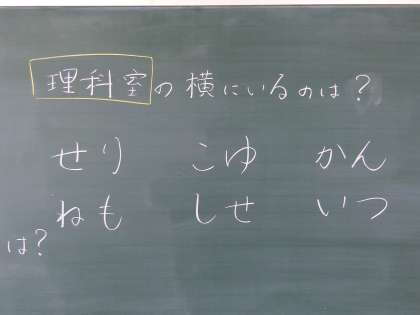 理科室の横にいるのは？
せり こゆ かん
ねも しせ いつ
は？